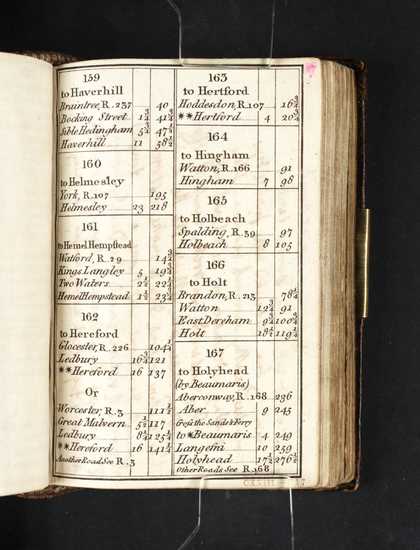 159
to Haverhill
Braintree, R. 237 40
Bocking Street 1¾ 41¾
Sible Hedingham 5¾ 47½
Haverhill 11 58½
160
to Helmesley
York, R. 107 195
Helmesley 23 218
161
to Hemel Hempstead
Watford, R. 29 14½
Kings Langley 5 19½
Two Waters 2½ 22
Hemel Hempstead 1½ 23½
162
to Hereford
Glocester, R. 226 104¼
Ledbury 16¾ 121
**Hereford 16 137
Or
Worcester, R. 3 111½
Great Malvern 5½ 117
Ledbury 8¼ 125¼
**Hereford 16 141¼
Another Road See R. 3
163
to Hertford
Hoddesdon, R. 107 16¾
**Hertford 4 20¾
164
to Hingham
Watton, R. 166 91
Hingham 7 98
165
to Holbeach
Spalding, R. 39 97
Holbeach 8 105
166
to Holt
Brandon, R. 213 78¼
Watton 12¾ 91
East Dereham 9¾ 100¾
Holt 18½ 119¼
167
to Holyhead
(by Beaumaris)
Aberconway, R. 168 236
Aber 9 245
Cross the Sands & Ferry
to *Beaumaris 4 249
Langefni 10 259
Holyhead 17½ 276½
Other Roads See R. 168